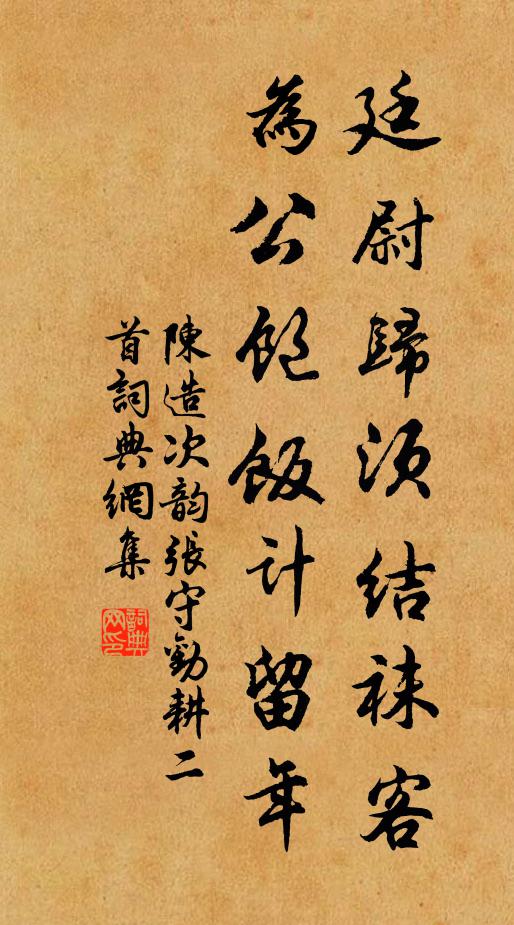 廷尉歸須結袜客
為公飽飯計留年
陳造次韵張守勸耕二
首詞典網集
詞典
网印